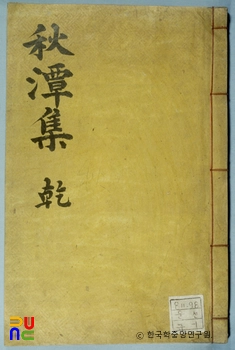 秋潭集 乾
UNC
ⓒ한국학중앙연구원